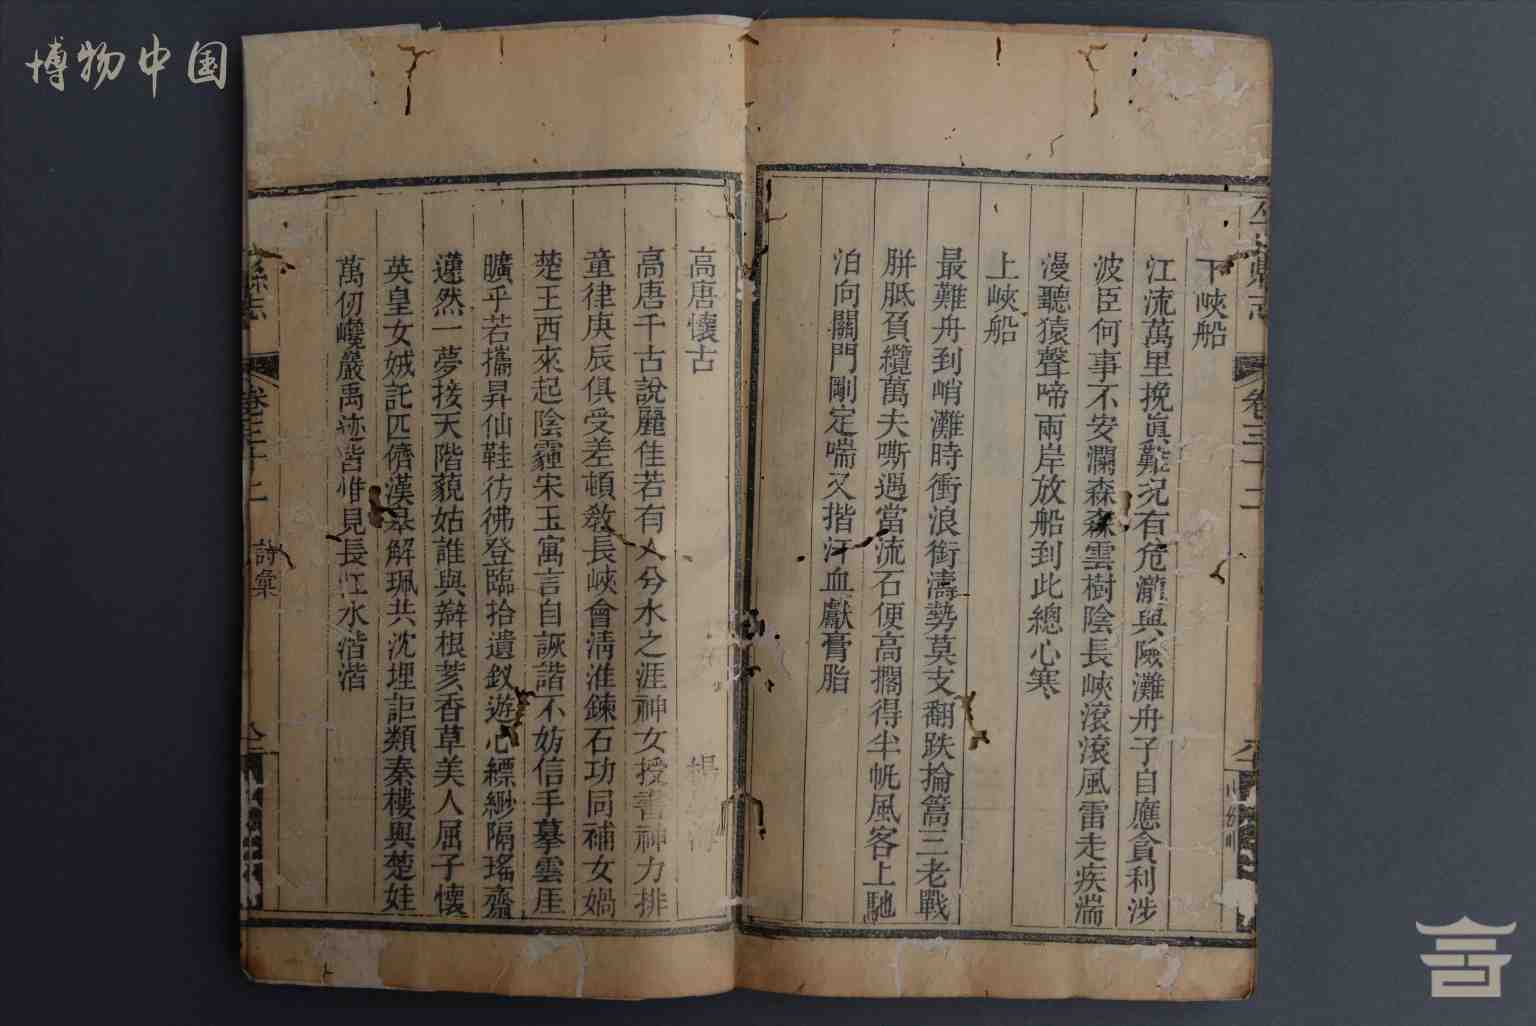 博物中国
下峽船
江流萬里挽眞難況有危瀧與險灘舟子自應貪利涉
波臣何事不安瀾森森雲樹陰長峽滾滾風雷走疾湍
漫聽猿聲啼兩岸放船到此總心寒
上峽船
最難舟到峭灘時衝浪銜濤勢莫支翻跌掄篙三老戰
胼胝負纜萬夫嘶遇當流石便高擱得半帆風客上馳
泊向關門剛定喘又揩汗血獻膏脂
卷三十二
高唐懷古
高唐千古說麗佳若有人兮水之涯神女授書神力排
童律庚辰俱受差頓教長峽會淸淮鍊石功同補女媧
楚王西來起陰霾宋玉寓言自詼諧不妨信手摹雲厓
曠乎若攜昇仙鞋彷彿登臨拾遺釵遊心縹緲隔瑤齋
蘧然一夢接天階藐姑誰與辯根荄香草美人屈子懷
英皇女娀託匹儕漢皋解珮共沈埋詎類秦樓與楚娃
萬仞巉巖禹迹皆惟見長江水湝湝
縣志
詩彙